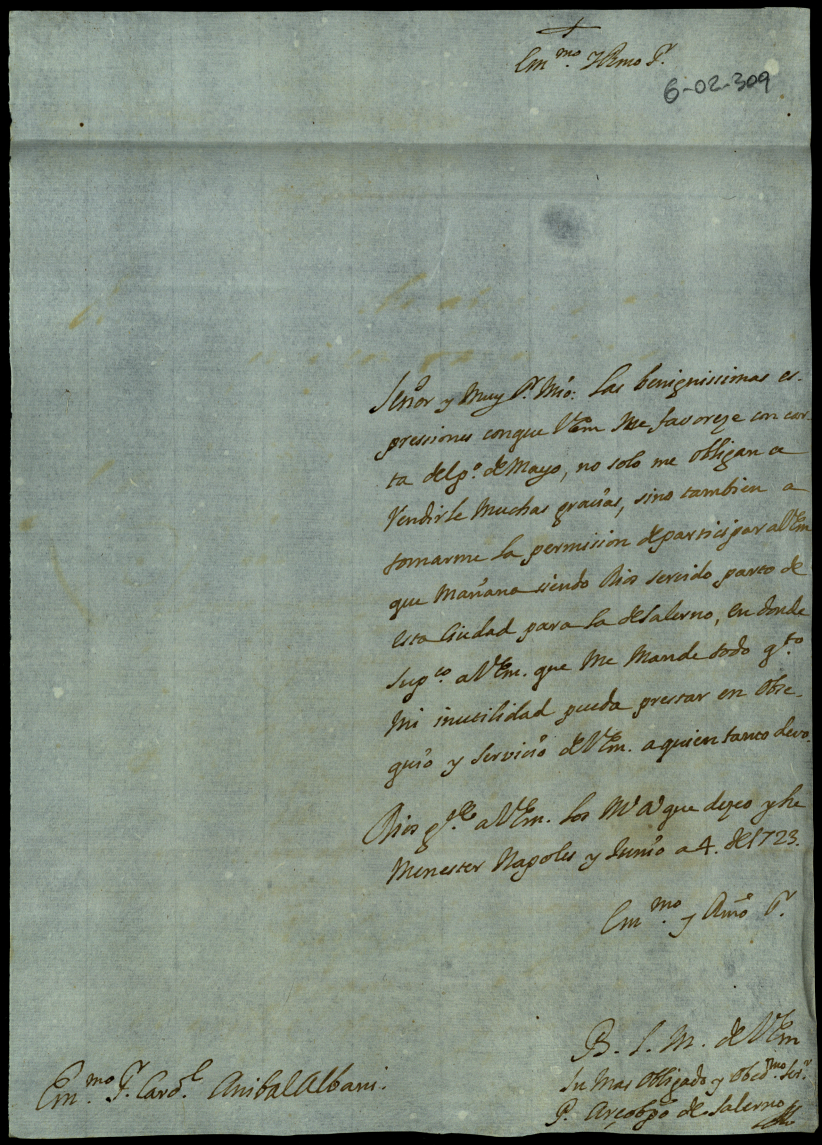 +
Em.mo y Rmo S.r
6-02-309
Señor y Muy S.r Mio: Las benignissimas es-
pressiones conque VEm Me favoreze con car-
ta del p.o de Mayo, no solo me obligan a
rendirle Muchas gracias, sino tambien a
tomarme la permision de participar a VEm
que Mañana siendo Dios servido parto de
esta Ciudad para la de Salerno, en donde
sup.co a VEm. que Me Mande todo q.to
Mi inutilidad pueda prestar en obse-
quio y servicio de VEm. a quien tanto devo.
Dios g.de a VEm. los M.s A.s que deseo y he
Menester Napoles y Junio a 4. de 1723.
Em.mo y Rmo S.r
B. L. M. de VEm
Su Mas obligado y obed.mo Ser.r
P. Arçobpo de Salerno
Em.mo S.r Card.l Anibal Albani.